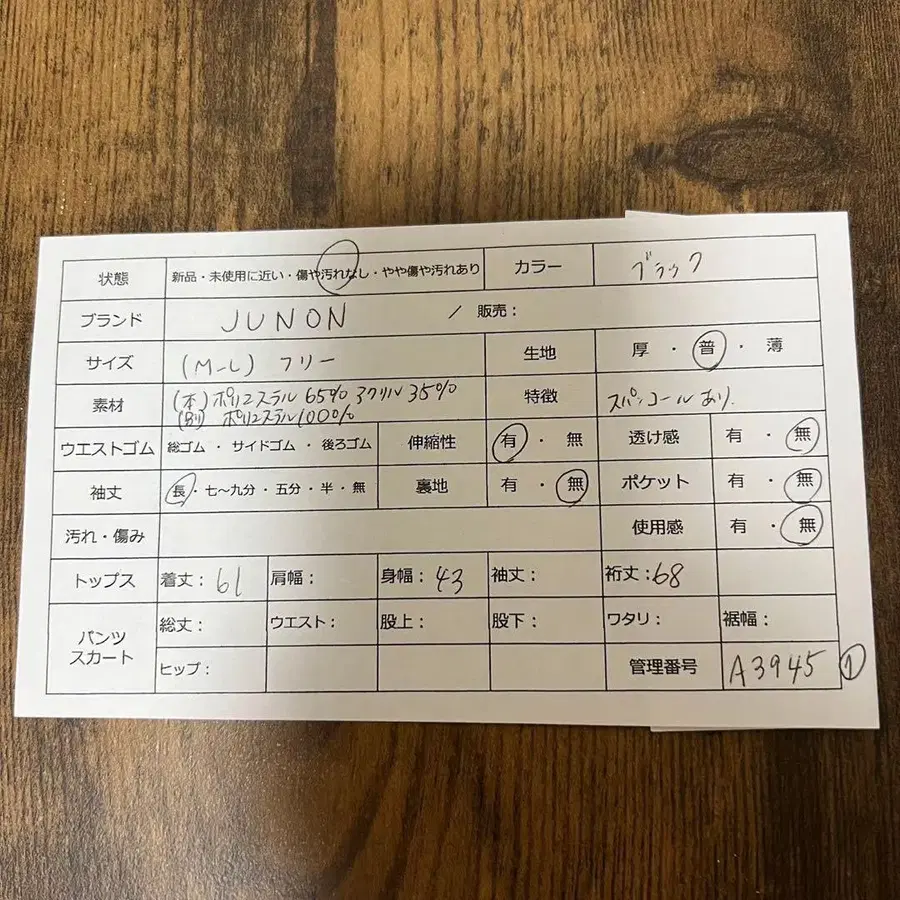 状態 新品・未使用に近い・傷や汚れなし・やや傷や汚れあり カラー ブラック
ブランド JUNON / 販売:
サイズ (M-L) フリー 生地 厚・普・薄
素材 (本)ポリエステル65% アクリル35% 特徴 スパンコールあり.
(別) ポリエステル100%
ウエストゴム 総ゴム・サイドゴム・後ろゴム 伸縮性 有・無 透け感 有・無
袖丈 長・七〜九分・五分・半・無 裏地 有・無 ポケット 有・無
汚れ・傷み 使用感 有・無
トップス 着丈:61 肩幅: 身幅:43 袖丈: 裄丈:68
パンツ スカート 総丈: ウエスト: 股上: 股下: ワタリ: 裾幅:
ヒップ: 管理番号 A3945 ①